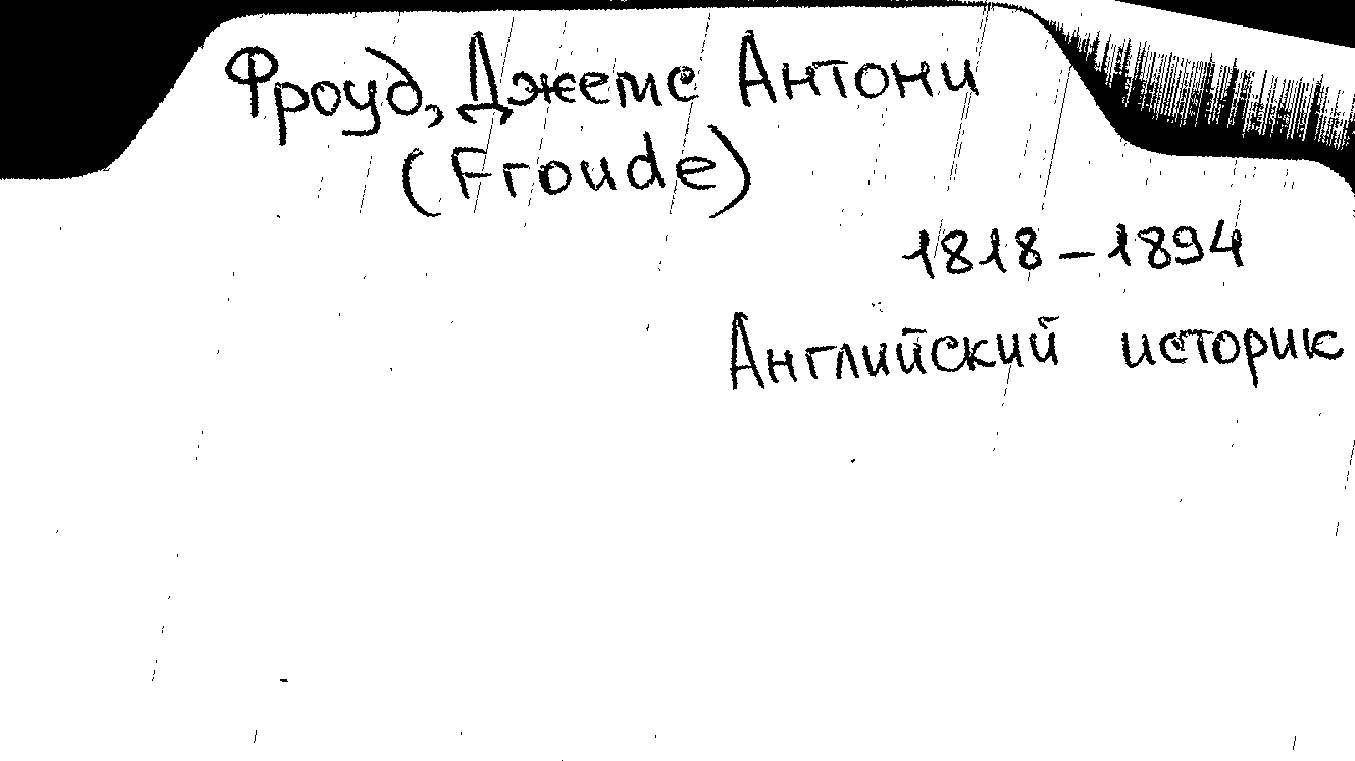 Фроуд, Джемс Антони
(Froude)
1818-1894
Английский историк